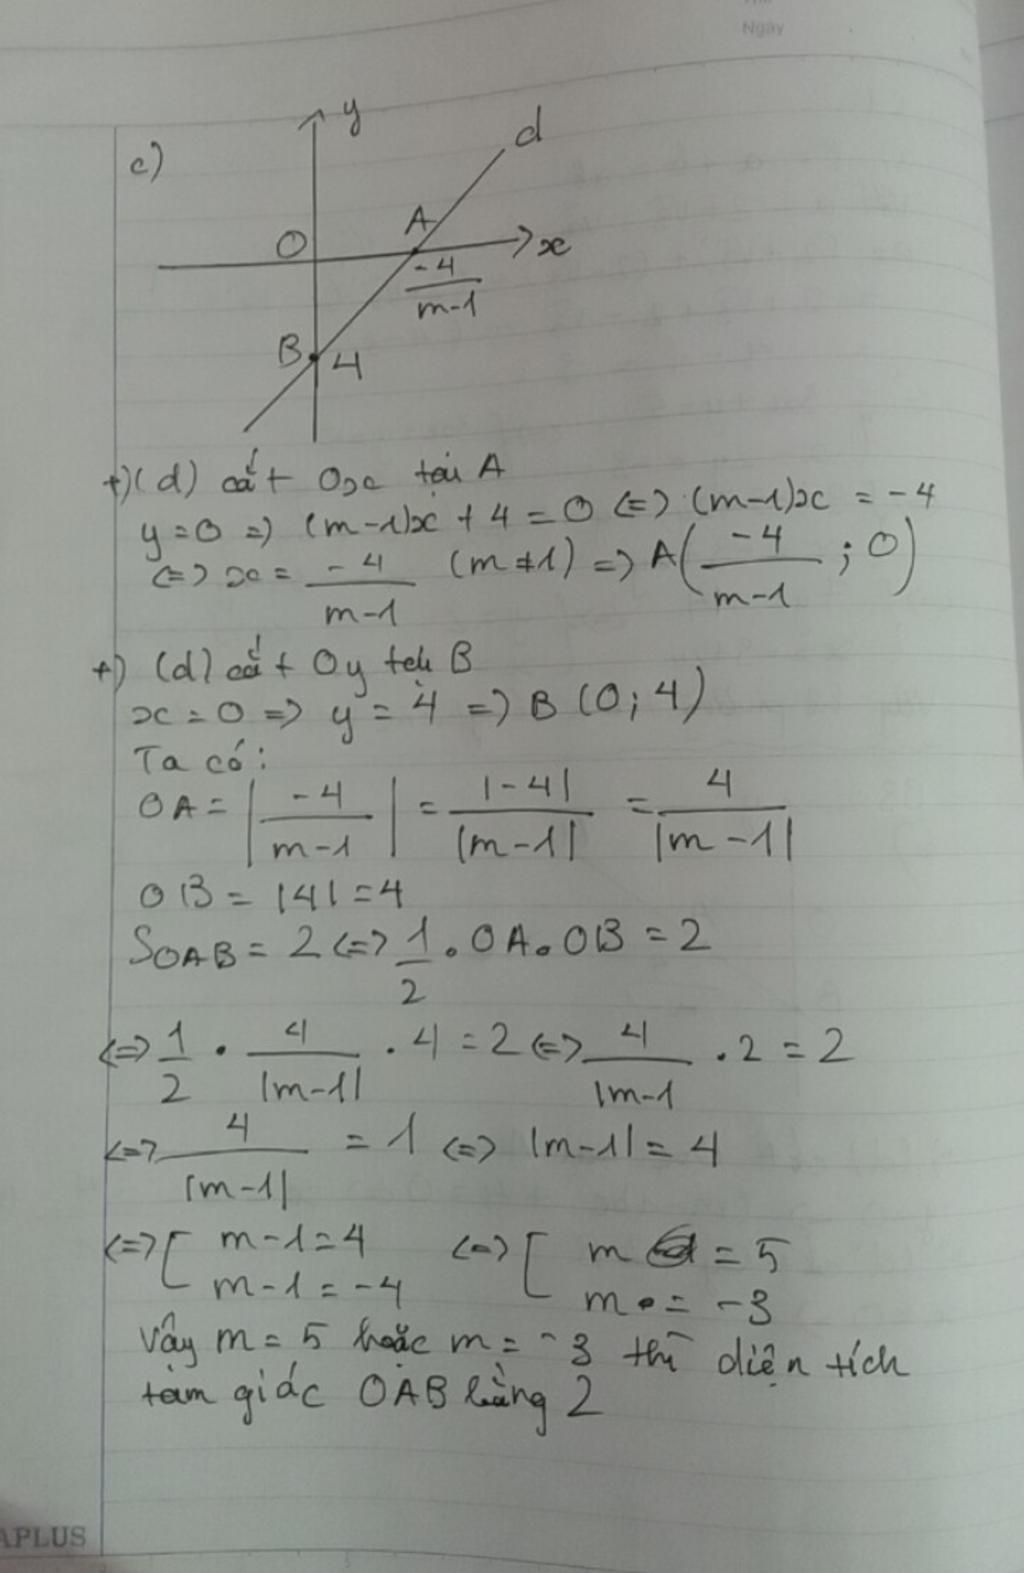 Ngày
c)
y
d
O
A
x
-4/(m-1)
B
4
+) (d) cắt Ox tại A
y = 0 => (m-1)x + 4 = 0 <=> (m-1)x = -4
<=> x = -4/(m-1) (m ≠ 1) => A(-4/(m-1); 0)
+) (d) cắt Oy tại B
x = 0 => y = 4 => B (0; 4)
Ta có:
OA = |-4/(m-1)| = |-4|/|m-1| = 4/|m-1|
OB = |4| = 4
SOAB = 2 <=> 1/2 . OA . OB = 2
<=> 1/2 . 4/|m-1| . 4 = 2 <=> 4/|m-1 . 2 = 2
<=> 4/|m-1| = 1 <=> |m-1| = 4
<=> [ m-1 = 4 <=> [ m = 5
m-1 = -4 m = -3
Vậy m = 5 hoặc m = -3 thì diện tích
tam giác OAB bằng 2
APLUS